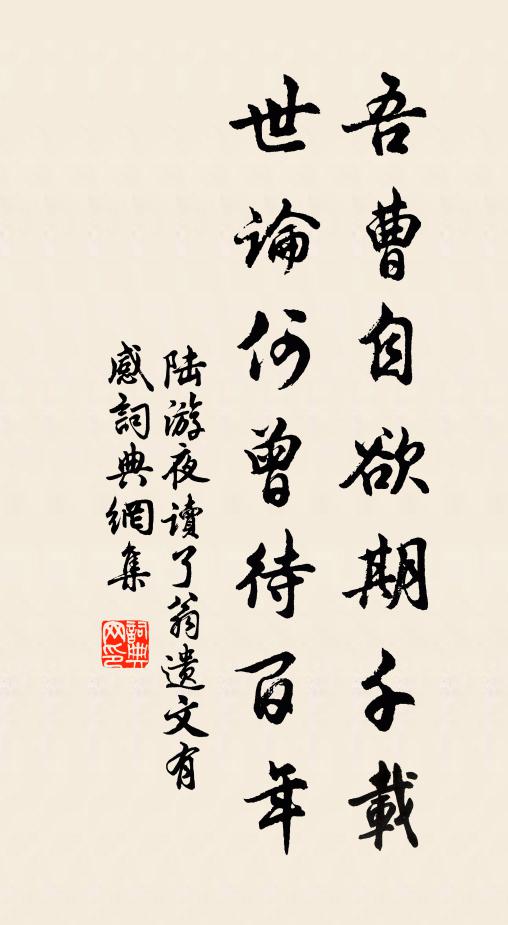 吾曹自欲期千載
世論何曾待百年
陸游夜讀了翁遺文有
感詞典網集
詞典
网印